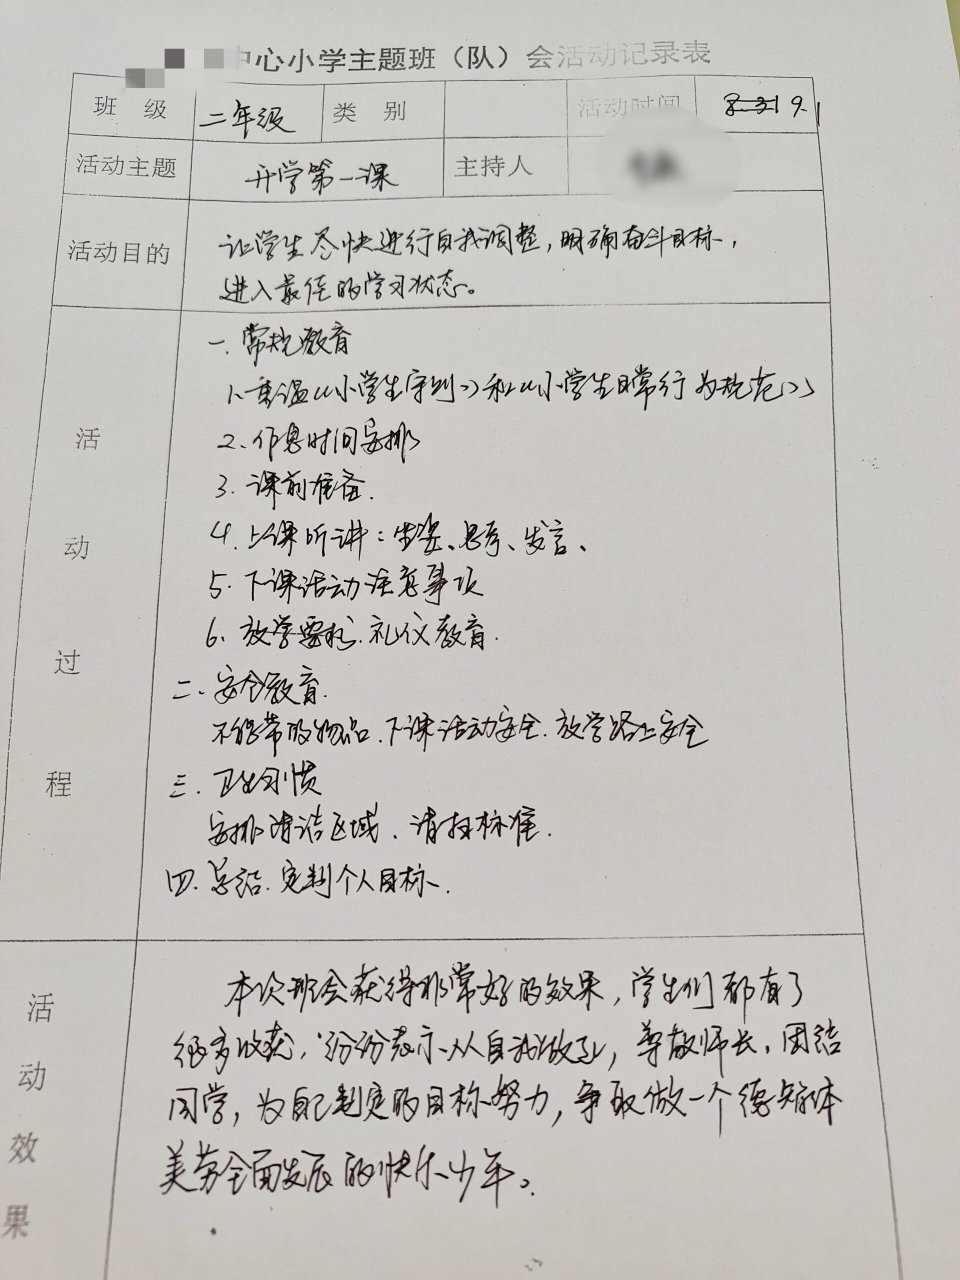 中心小学主题班（队）会活动记录表
班 级 二年级 类 别 活动时间 9.1
活动主题 开学第一课 主持人
活动目的 让学生尽快进行自我调整，明确奋斗目标，
进入最佳的学习状态。
活动过程
一. 常规教育
1. 重温《小学生守则》和《小学生日常行为规范》
2. 作息时间安排
3. 课前准备.
4. 上课听讲：坐姿、思考、发言、
5. 下课活动注意事项
6. 放学要求. 礼仪教育.
二. 安全教育.
不能带的物品. 下课活动安全. 放学路上安全
三. 卫生习惯
安排清洁区域. 清扫标准.
四. 总结. 定制个人目标.
活动效果
本次班会获得非常好的效果，学生们都有了
很多收获，纷纷表示从自我做起，尊敬师长，团结
同学，为自己制定的目标努力，争取做一个德智体
美劳全面发展的快乐少年。